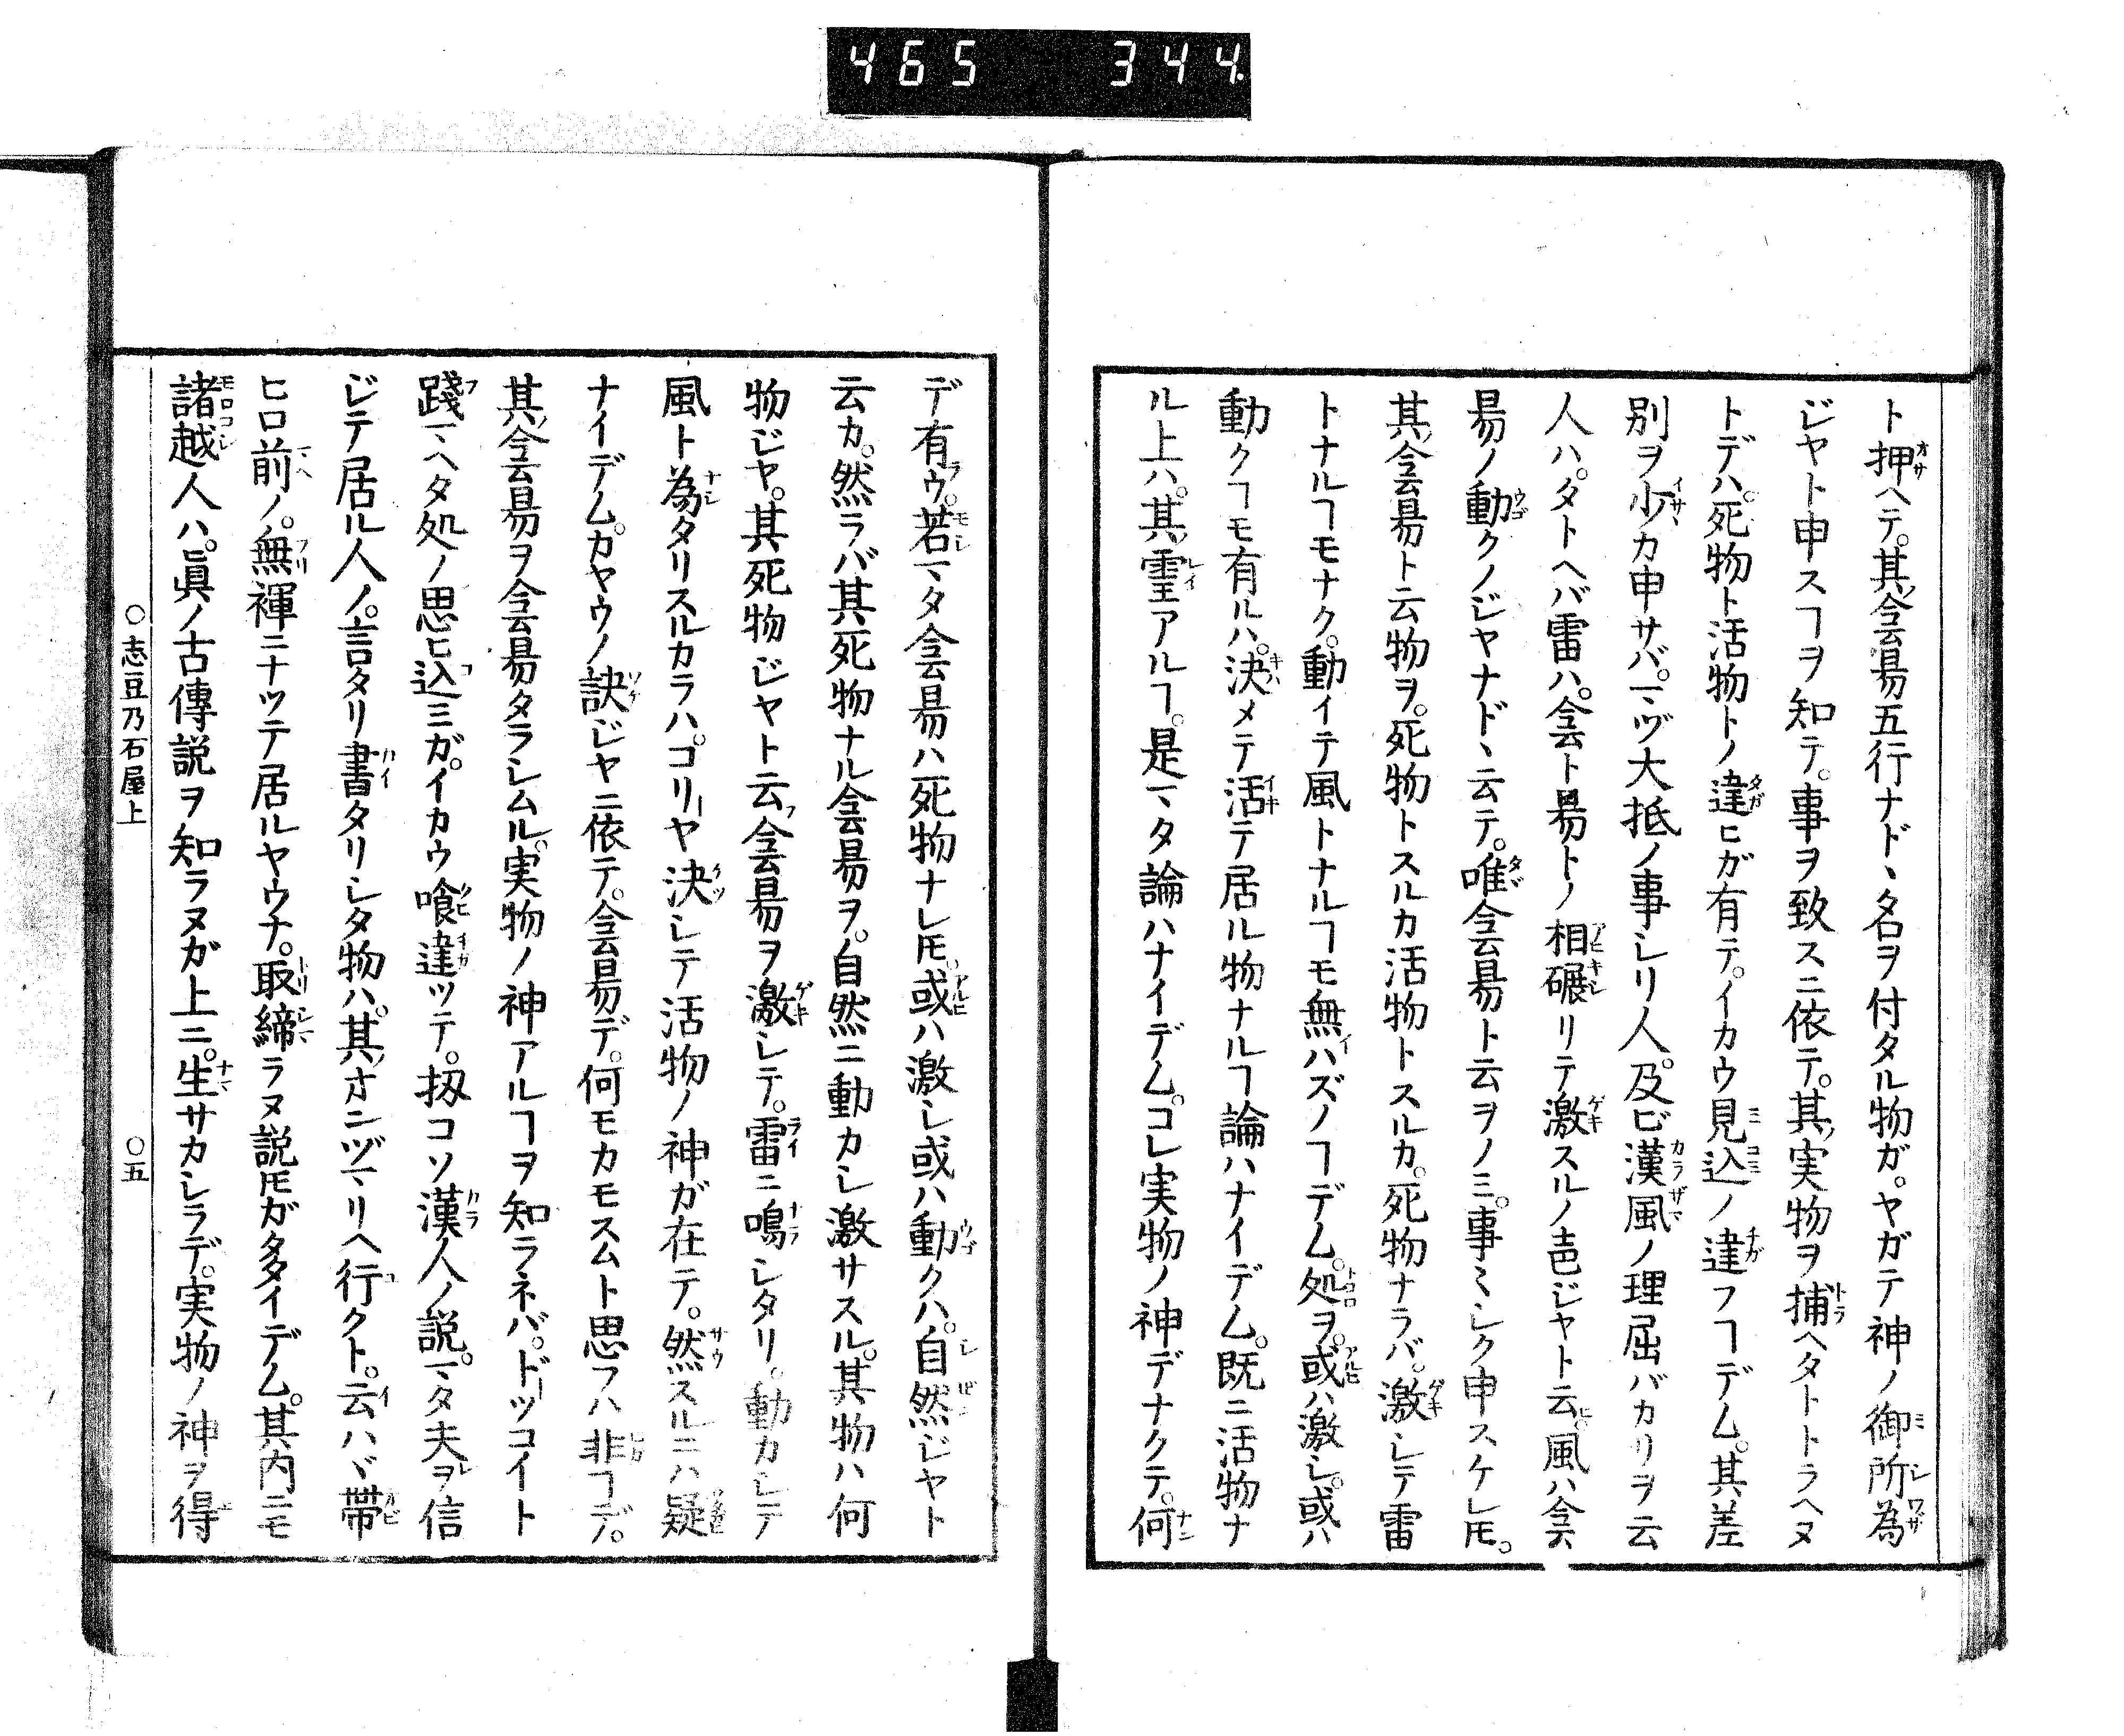 465 344
ト押ヘテ。其侌昜五行ナド、名ヲ付タル物ガ。ヤガテ神ノ御所為
ジヤト申スヿヲ知テ。事ヲ致スニ依テ。其実物ヲ捕ヘタトトラヘヌ
トデハ。死物ト活物トノ違ヒガ有テ。イカウ見込ノ違フヿデム。其差
別ヲ少カ申サバ。マヅ大抵ノ事シリ人。及ビ漢風ノ理屈バカリヲ云
人ハ。タトヘバ雷ハ。侌ト昜トノ相碾リテ激スルノ声ジヤト云。風ハ侌
昜ノ動クノジヤナド、云テ。唯侌昜ト云ヲノミ。事〻シク申スケレ𪜈。
其侌昜ト云物ヲ。死物トスルカ活物トスルカ。死物ナラバ。激シテ雷
トナルヿモナク。動イテ風トナルヿモ無ハズノヿデム。処ヲ。或ハ激シ。或ハ
動クヿモ有ルハ。決メテ活テ居ル物ナルヿ論ハナイデム。既ニ活物ナ
ル上ハ。其霊アルヿ。是マタ論ハナイデム。コレ実物ノ神デナクテ。何
デ有ウ。若マタ侌昜ハ死物ナレ𪜈。或ハ激シ或ハ動クハ。自然ジヤト
云カ。然ラバ其死物ナル侌昜ヲ。自然ニ動カシ激サスル。其物ハ何
物ジヤ。其死物ジヤト云侌昜ヲ激シテ。雷ニ鳴シタリ。動カシテ
風ト為タリスルカラハ。ゴリーヤ決シテ活物ノ神ガ在テ。然スルニハ疑
ナイデム。カヤウノ訣ジヤニ依テ。侌昜デ。何モカモスムト思フハ非ヿデ。
其侌昜ヲ侌昜タラシムル。実物ノ神アルヿヲ知ラネバ。ドーツコイト
踐マヘタ処ノ思ヒ込ミガ。イカウ喰違ツテ。扨コソ漢人ノ説。マタ夫ヲ信
ジテ居ル人ノ。言タリ書タリシタ物ハ。其オニヅマリヘ行クト。云ハヾ帯
ヒロ前ノ。無褌ニナツテ居ルヤウナ。取締ラヌ説𪜈ガ多イデム。其内ニモ
諸越人ハ。眞ノ古傳説ヲ知ラヌガ上ニ。生サカシラデ。実物ノ神ヲ得
〇志豆乃石屋上 〇五